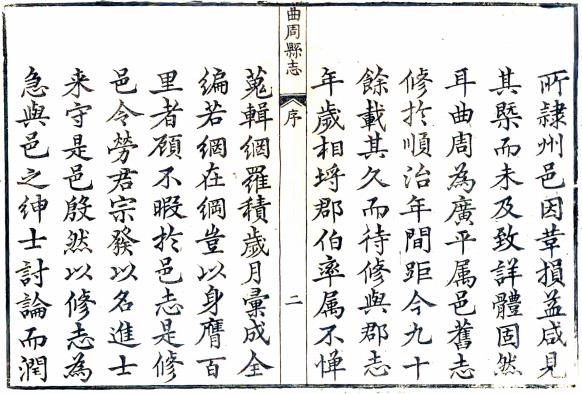 所隷州邑因革損益咸見
其槩而未及致詳體固然
耳曲周為廣平属邑舊志
修於順治年間距今九十
餘載其久而待修與郡志
年歲相埒郡伯率属不憚
曲周縣志
序
二
蒐輯網羅積歲月彙成全
編若網在綱豈以身膺百
里者顧不暇於邑志是修
邑令勞君宗發以名進士
来守是邑殷然以修志為
急與邑之紳士討論而潤